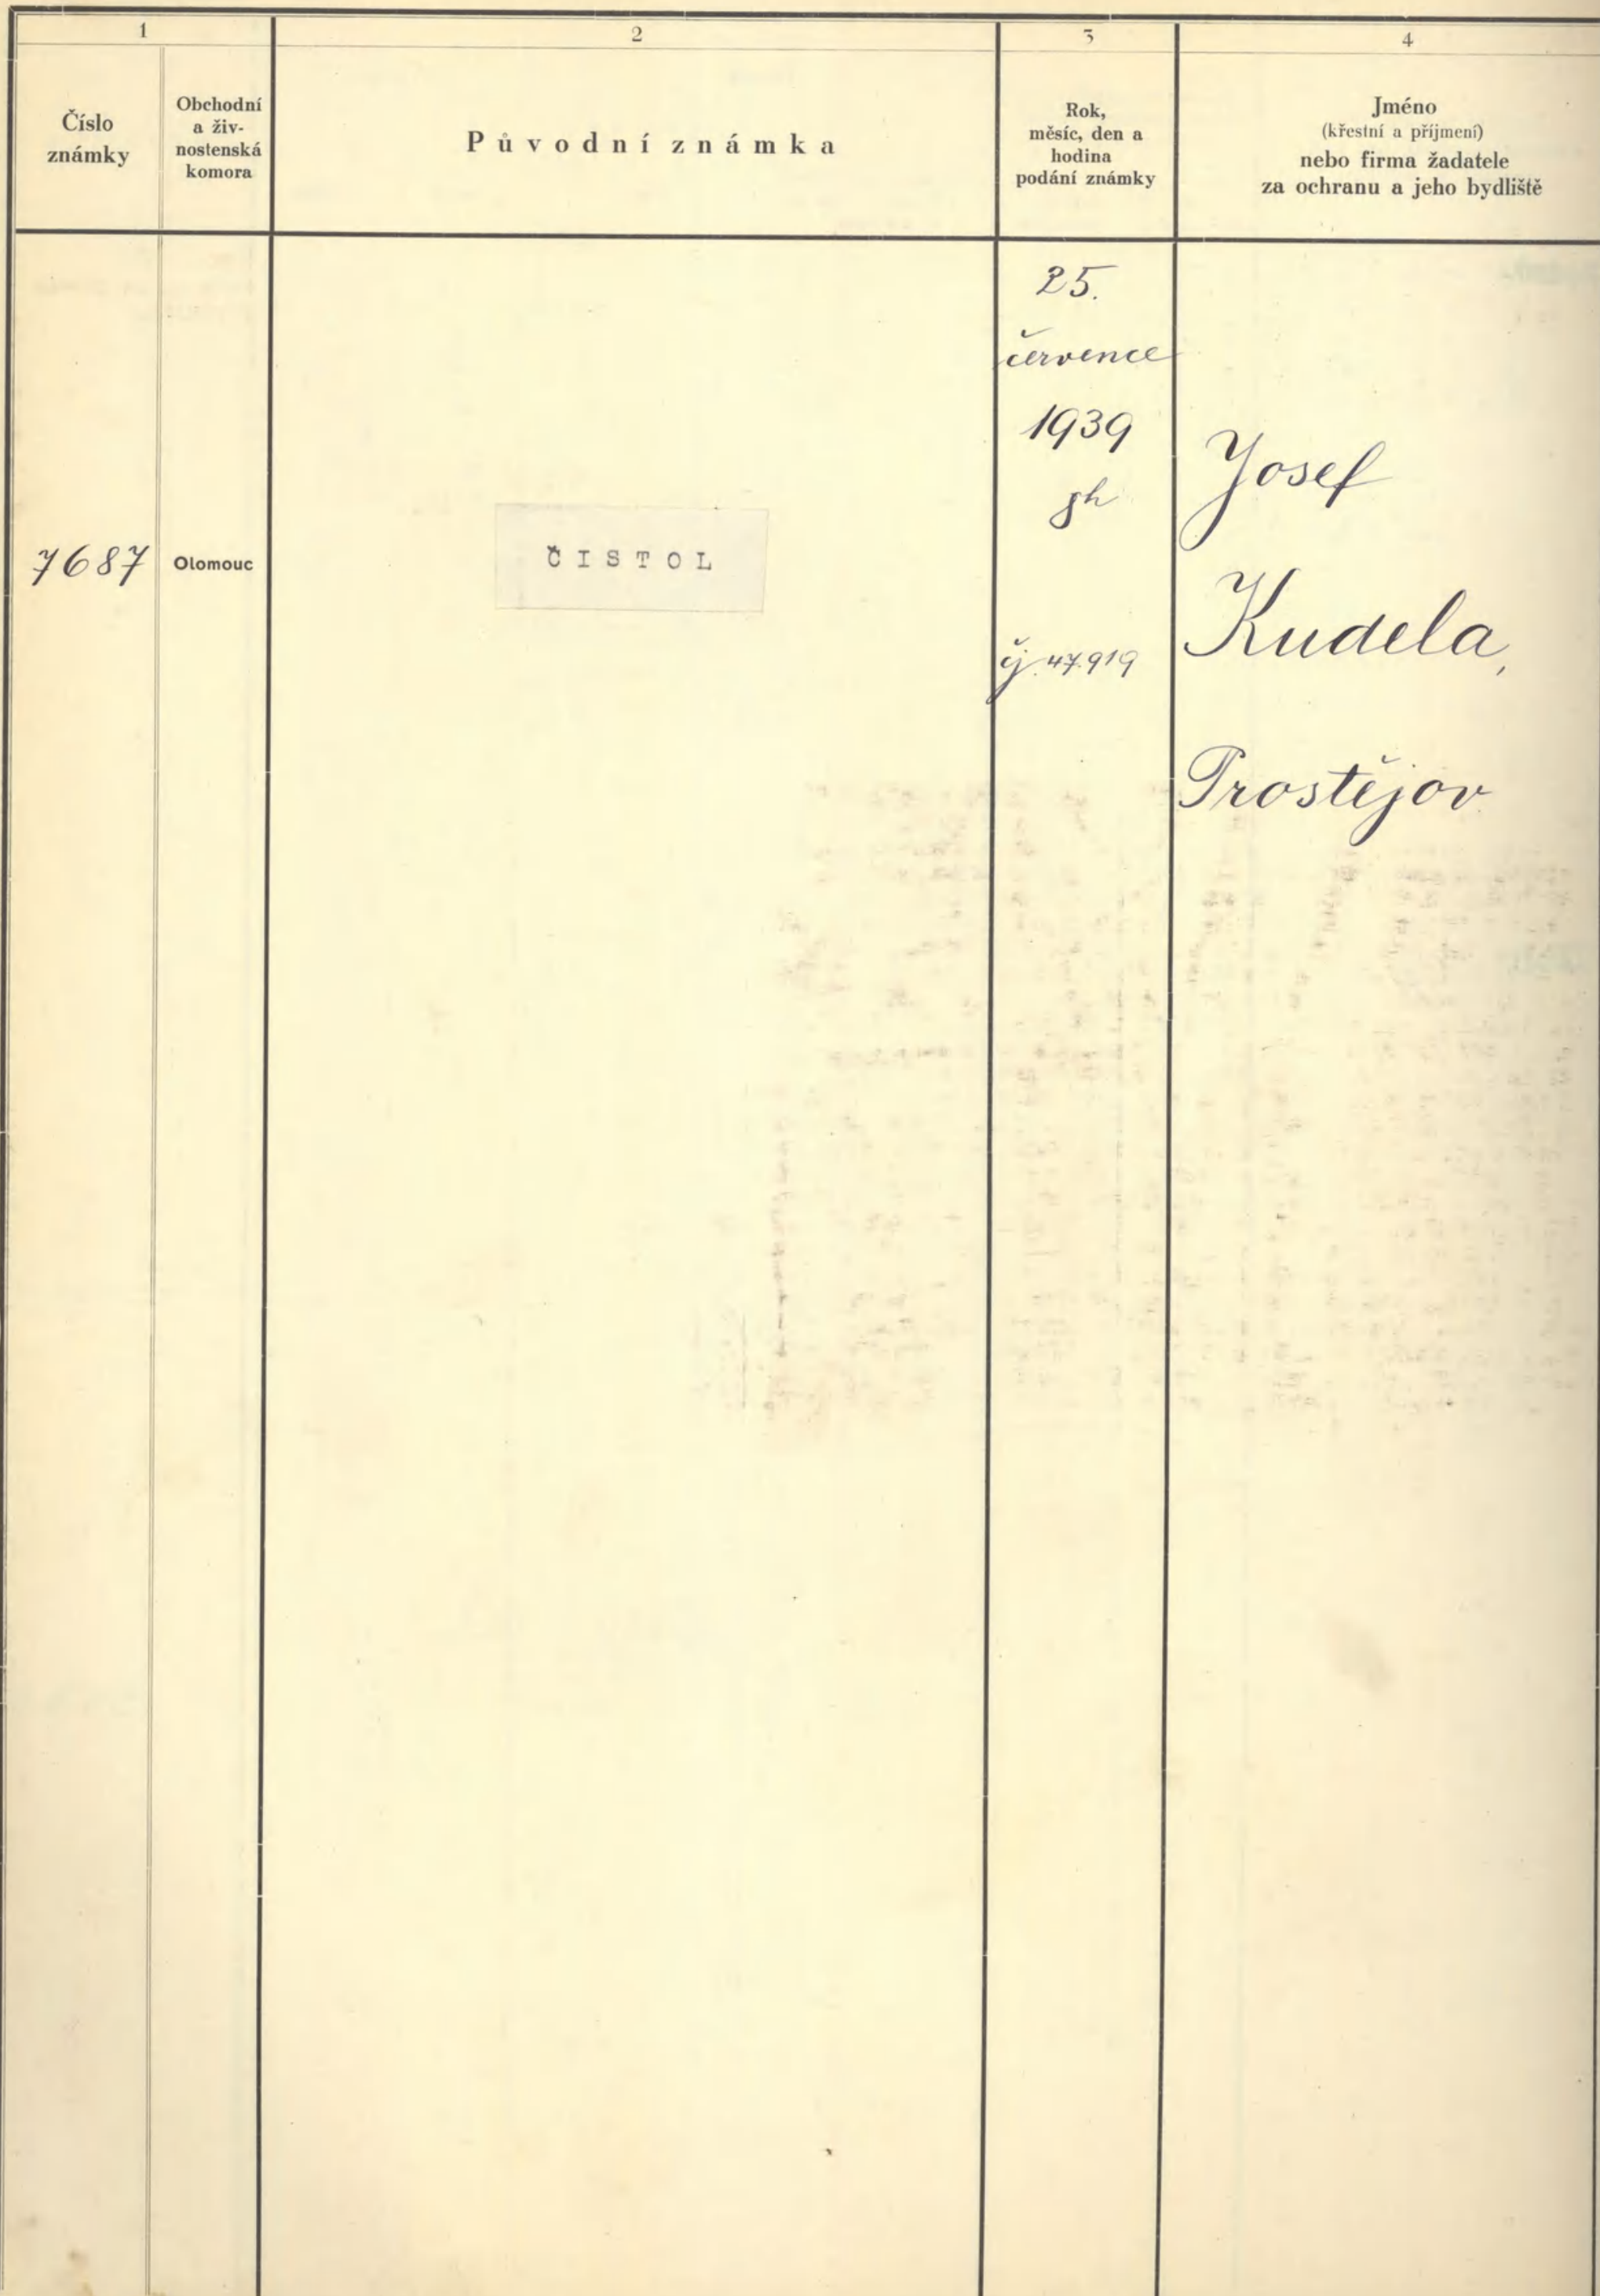 1
2
3
4
Číslo
známky
Obchodní
a živ-
nostenská
komora
Původní známka
Rok,
měsíc, den a
hodina
podání známky
Jméno
(křestní a příjmení)
nebo firma žadatele
za ochranu a jeho bydliště
7687
Olomouc
ČISTOL
25.
července
1939
8h
čj. 47.919
Josef
Kudela,
Prostějov